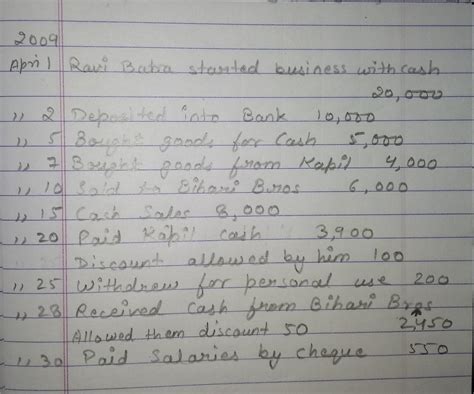 2009
April 1 Ravi Batra started business with cash
20,000
,, 2 Deposited into Bank 10,000
,, 5 Bought goods for Cash 5,000
,, 7 Bought goods from Kapil 4,000
,, 10 Sold to Bihari Bros 6,000
,, 15 Cash Sales 8,000
,, 20 Paid Kapil cash 3,900
Discount allowed by him 100
,, 25 Withdrew for personal use 200
,, 28 Received cash from Bihari Bros
Allowed them discount 50 2,450
,, 30 Paid Salaries by cheque 550